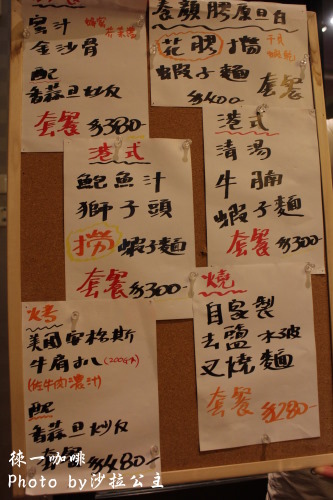 蜜汁
金沙骨
配
香蒜旦炒反
套餐 $380-
養顏膠原旦白
花膠撈
蝦子麵
套餐
$400-
港式
鮑魚汁
獅子頭
撈 蝦子麵
套餐 $300-
港式
清湯
牛腩
蝦子麵
套餐 $300-
烤
美國安格斯
牛肩小八(200g以下)
(佐牛肉濃汁)
配
香蒜旦炒反
套餐 $480-
燒
自家製
去鹽水波
叉燒麵
套餐 $280-
徠一咖啡
Photo by沙拉公主